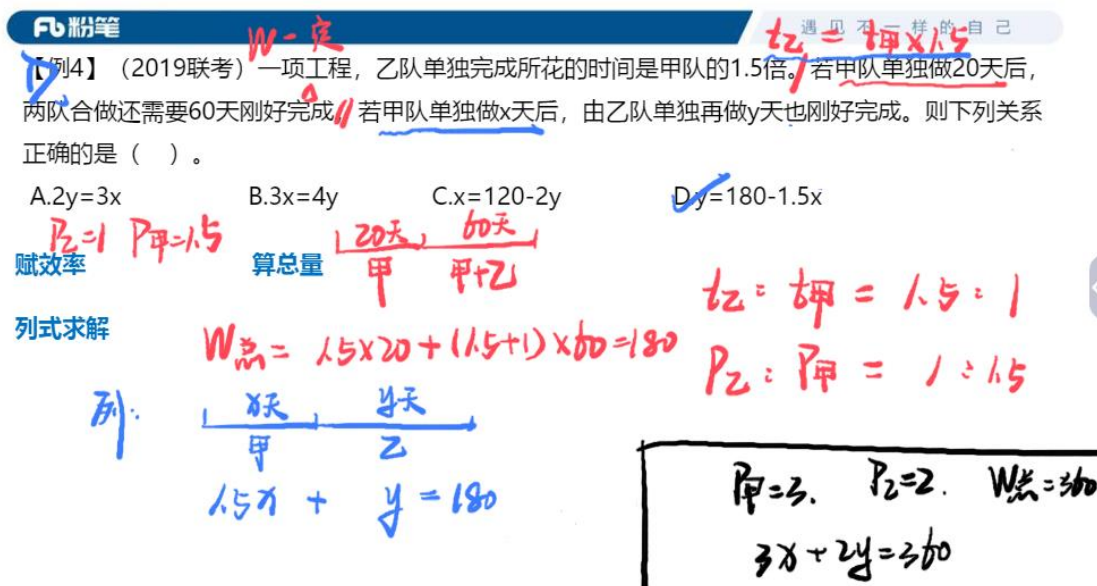 粉笔
遇见不一样的自己
W一定
t乙 = t甲×1.5
【例4】（2019联考）一项工程，乙队单独完成所花的时间是甲队的1.5倍。若甲队单独做20天后，
两队合做还需要60天刚好完成。若甲队单独做x天后，由乙队单独再做y天也刚好完成。则下列关系
正确的是（ ）。
A.2y=3x B.3x=4y C.x=120-2y D.y=180-1.5x
P乙=1 P甲=1.5
20天 60天
赋效率 算总量
甲 甲+乙
t乙：t甲 = 1.5：1
列式求解
W总= 1.5×20+(1.5+1)×60=180
P乙：P甲 = 1：1.5
列：
x天 y天
甲 乙
1.5x + y = 180
P甲=3. P乙=2. W总=360
3x+2y=360